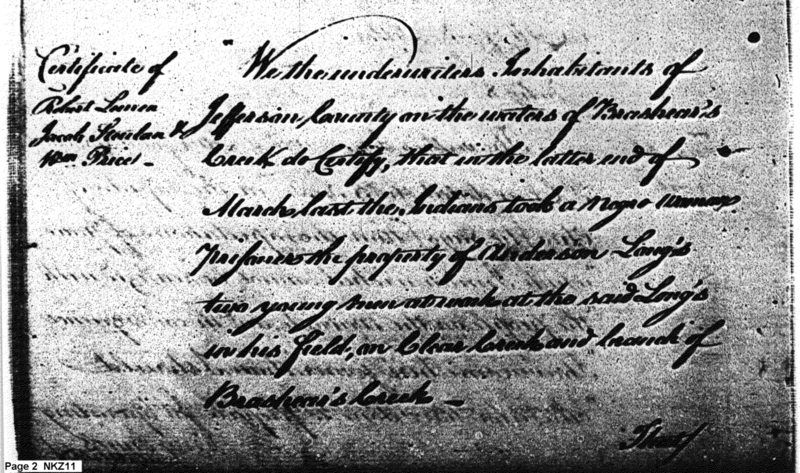 Certificate of
Robert Lemen
Jacob &
Wm Price -
We the underwriters Inhabitants of
Jefferson County on the waters of Brashear's
Creek do Certify, that in the latter end of
March last the Indians took a Negro Woman
Prisoner the property of Anderson Long's
two young men at work at the said Long's
in his field, on Clear Creek and branch of
Brashear's Creek -
That
Page 2 NKZ11